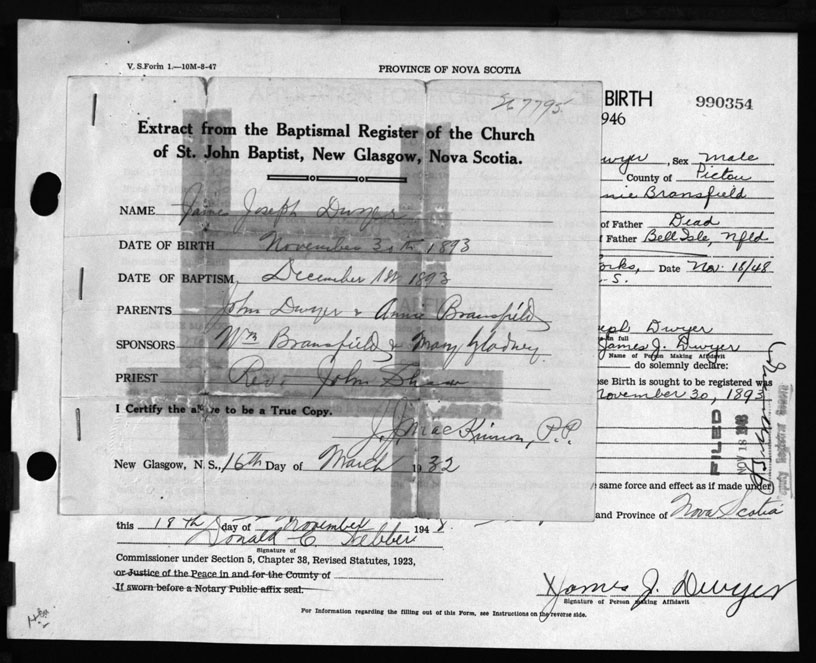 V. S. Form 1.—10M-8-47
PROVINCE OF NOVA SCOTIA
BIRTH
990354
946
267795
Extract from the Baptismal Register of the Church
of St. John Baptist, New Glasgow, Nova Scotia.
NAME James Joseph Dwyer
DATE OF BIRTH November 30th 1893
DATE OF BAPTISM, December 1st 1893
PARENTS John Dwyer & Annie Bransfield
SPONSORS Wm Bransfield & Mary Gladney
PRIEST Revd John Shaw
I Certify the above to be a True Copy.
J. J. MacKinnon, P.P.
New Glasgow, N. S., 16th Day of March 1932
wyer, Sex Male
County of Pictou
nnie Bransfield
of Father Dead
f Father Bell Isle, Nfld
orks, Date Nov. 18/48
. S.
eph Dwyer
in full
James J. Dwyer
Name of Person Making Affidavit
do solemnly declare:
se Birth is sought to be registered was
November 30, 1893
FILED
NOV 18 1948
same force and effect as if made under
and Province of Nova Scotia
this 18th day of November 1948.
Donald C.
Signature of
Commissioner under Section 5, Chapter 38, Revised Statutes, 1923,
or Justice of the Peace in and for the County of
If sworn before a Notary Public affix seal.
X James J. Dwyer
Signature of Person Making Affidavit
For Information regarding the filling out of this Form, see Instructions on the reverse side.